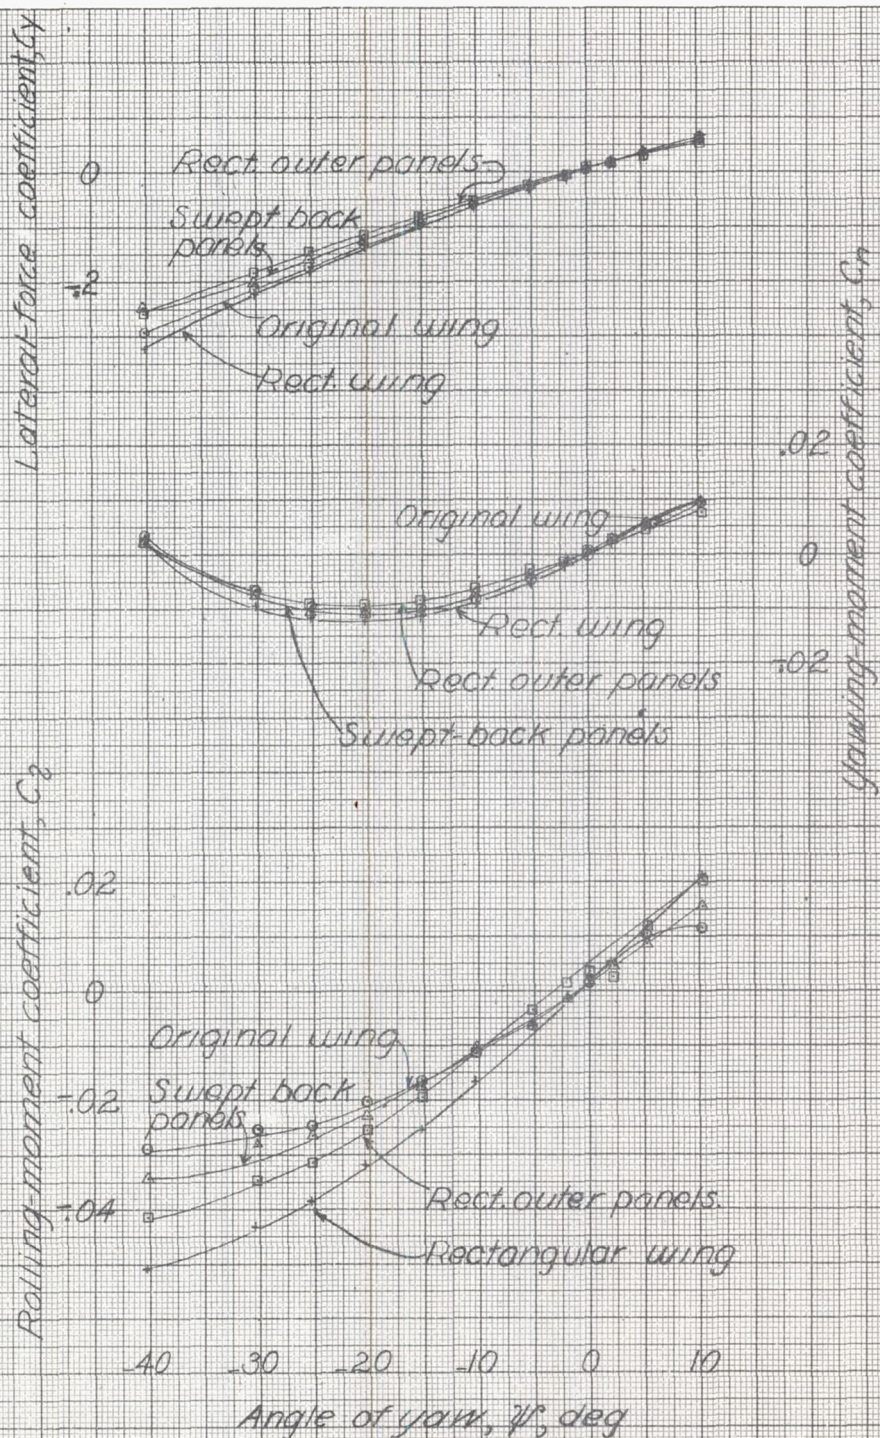 Lateral-force coefficient, Cy
0
-.2
Rect. outer panels
Swept back
panels
Original wing
Rect. wing
Yawing-moment coefficient, Cn
.02
0
-.02
Original wing
Rect. wing
Rect. outer panels
Swept-back panels
Rolling-moment coefficient, C2
.02
0
-.02
-.04
Original wing
Swept back
panels
Rect. outer panels.
Rectangular wing
-40 -30 -20 -10 0 10
Angle of yaw, ψ, deg